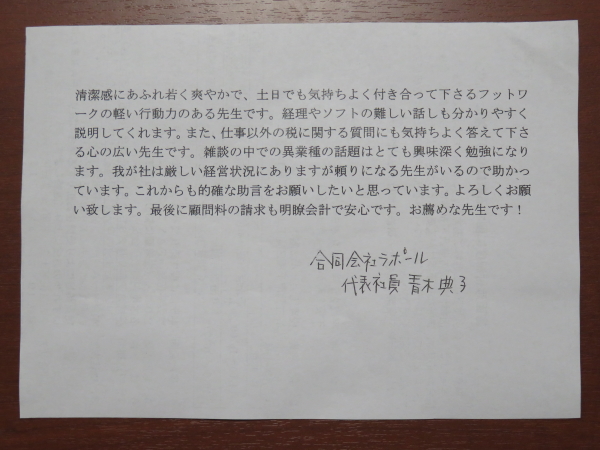 清潔感にあふれ若く爽やかで、土日でも気持ちよく付き合って下さるフットワ
ークの軽い行動力のある先生です。経理やソフトの難しい話しも分かりやすく
説明してくれます。また、仕事以外の税に関する質問にも気持ちよく答えて下さ
る心の広い先生です。雑談の中での異業種の話題はとても興味深く勉強になり
ます。我が社は厳しい経営状況にありますが頼りになる先生がいるので助かっ
ています。これからも的確な助言をお願いしたいと思っています。よろしくお願
い致します。最後に顧問料の請求も明瞭会計で安心です。お薦めな先生です！
合同会社ラポール
代表社員 青木典子